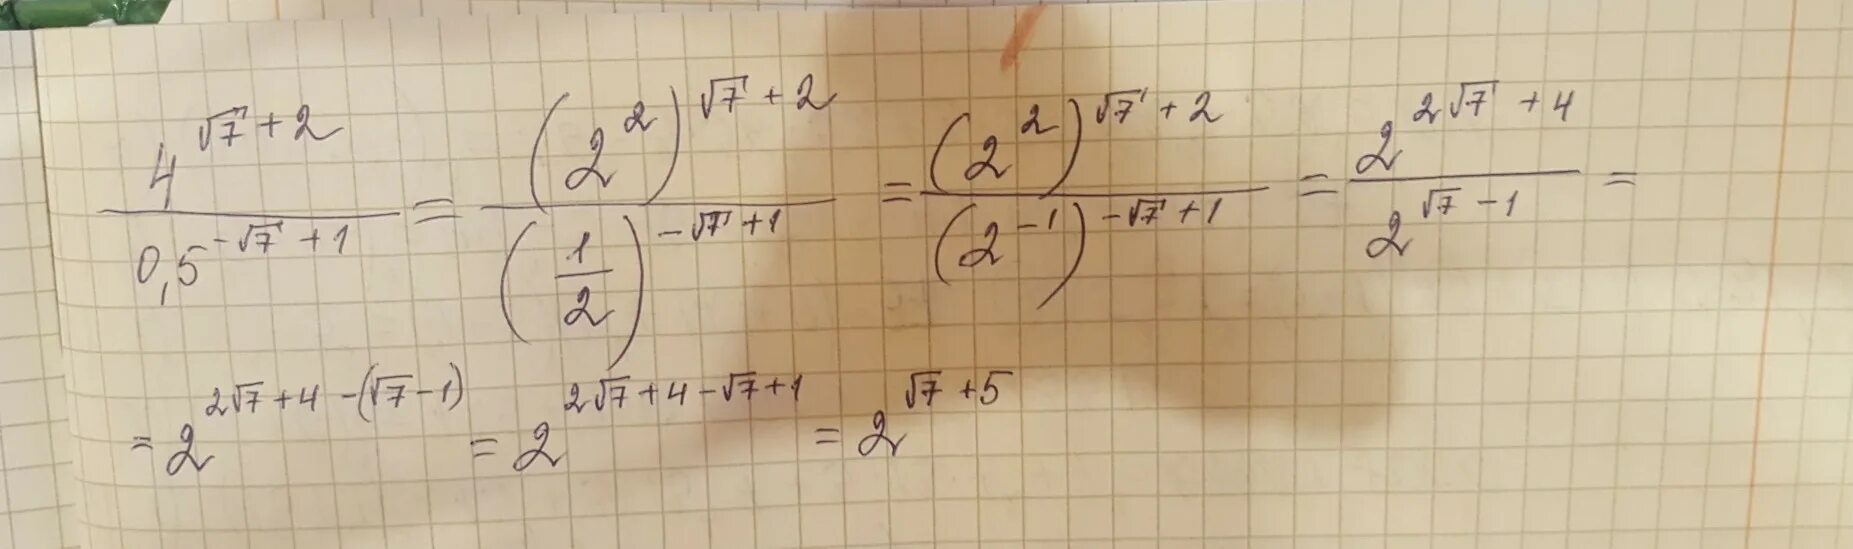 4^{√7 + 2} / 0,5^{-√7 + 1} = (2^2)^{√7 + 2} / (1/2)^{-√7 + 1} = (2^2)^{√7 + 2} / (2^{-1})^{-√7 + 1} = 2^{2√7 + 4} / 2^{√7 - 1} =
= 2^{2√7 + 4 - (√7 - 1)} = 2^{2√7 + 4 - √7 + 1} = 2^{√7 + 5}